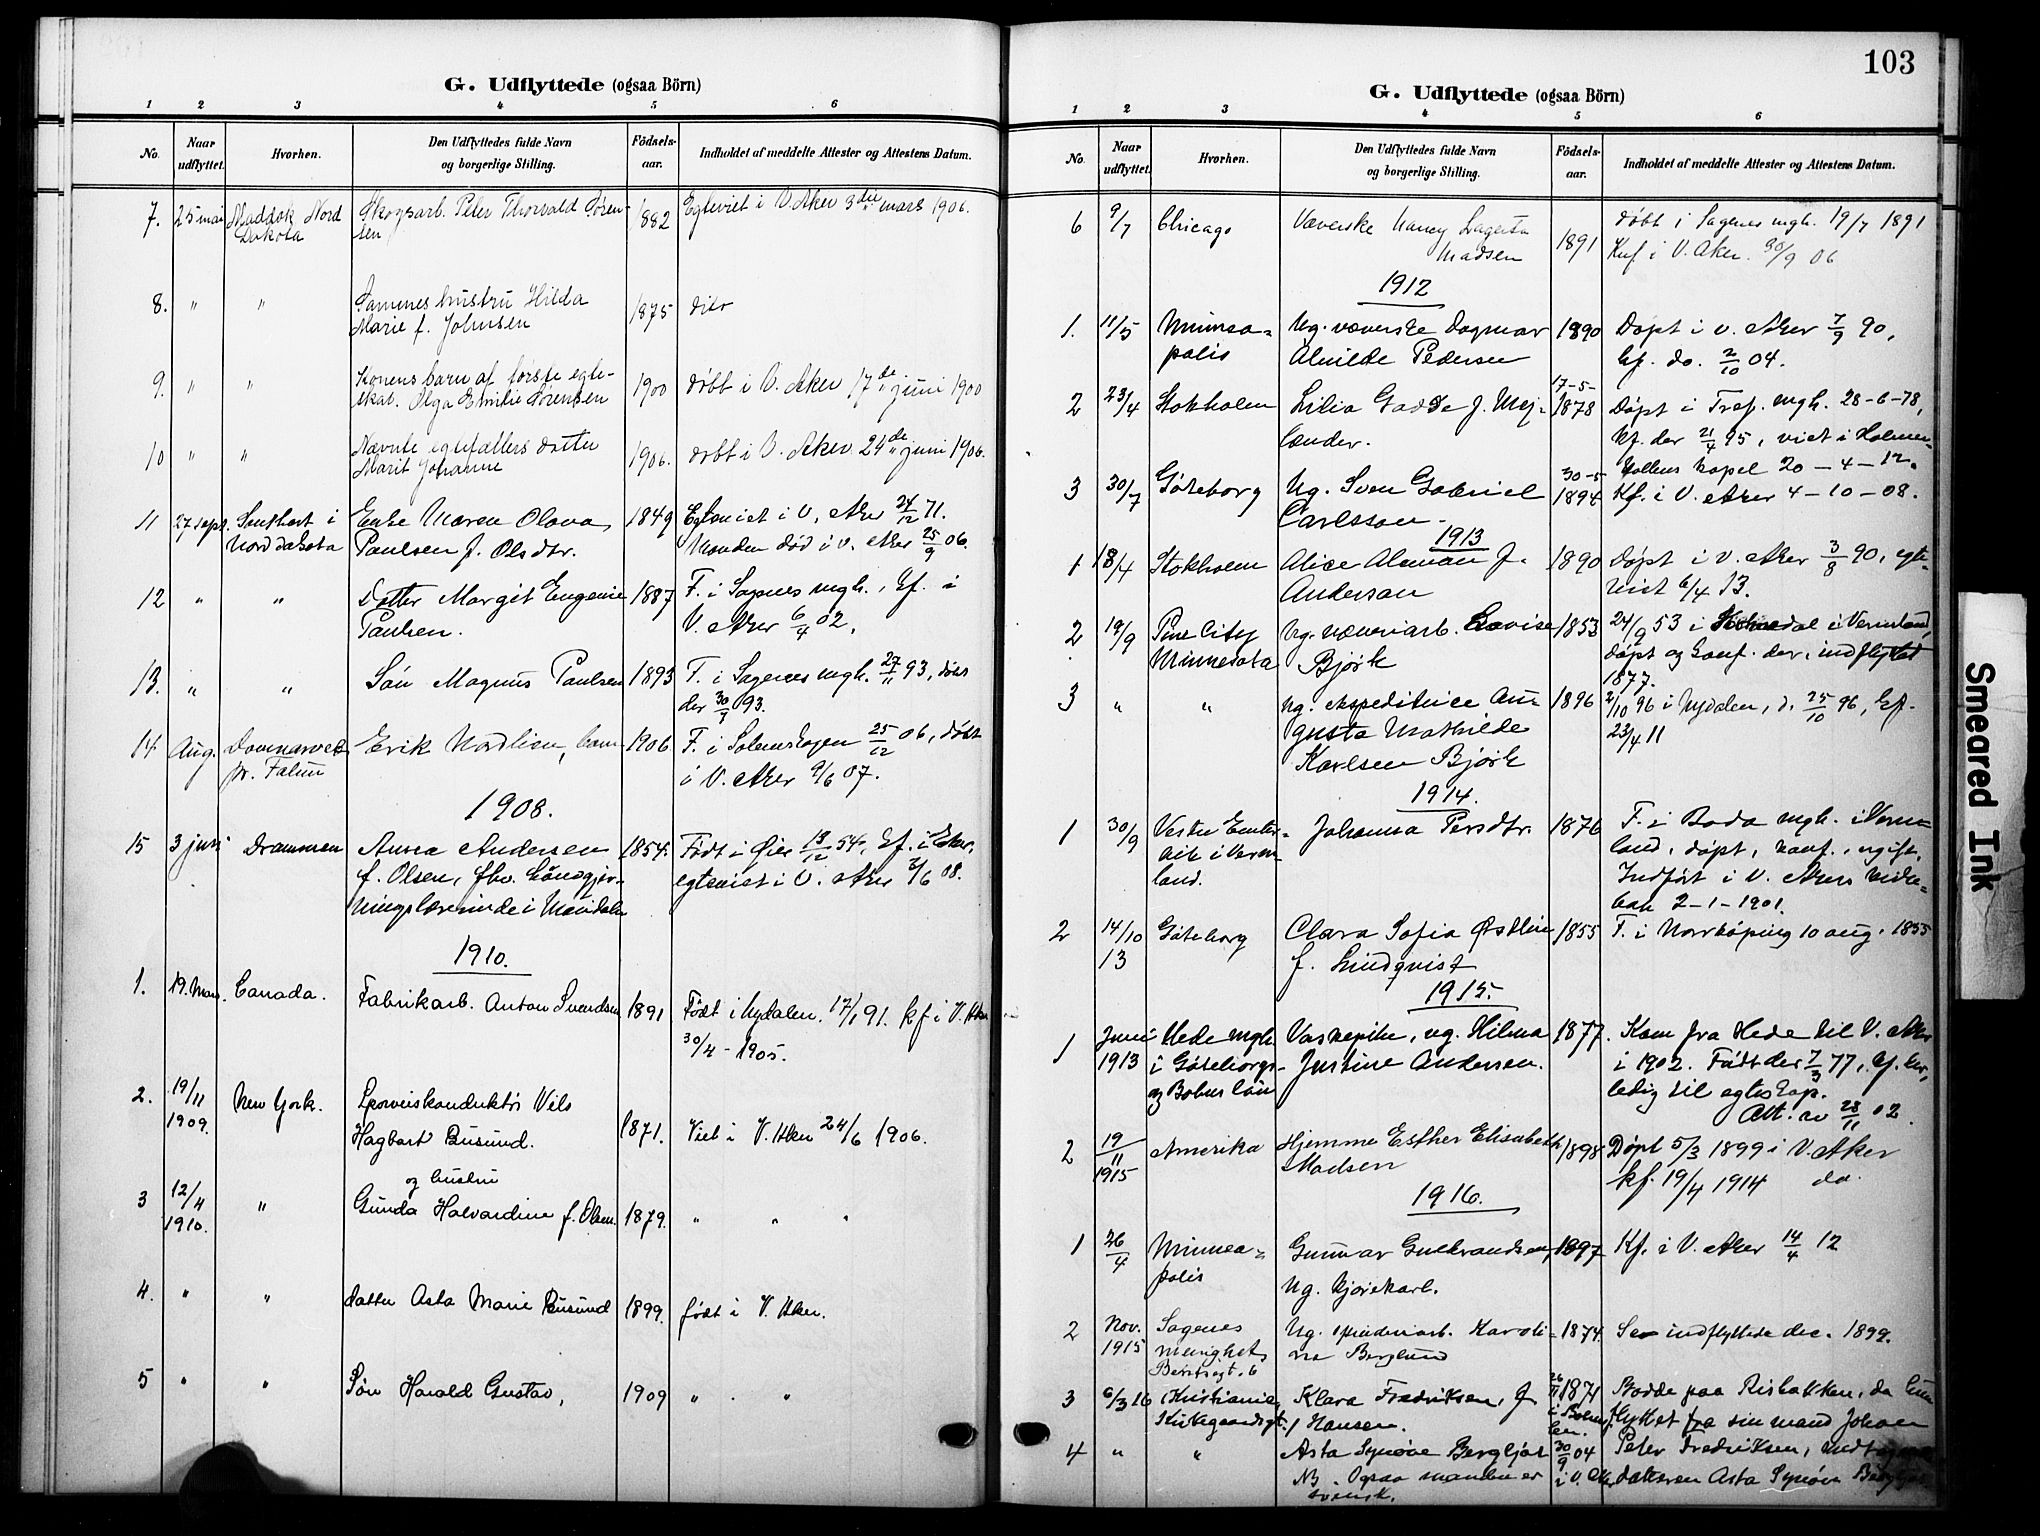 G. Udflyttede (ogsaa Börn)
1 2 3 4 5 6
No. Naar udflyttet. Hvorhen. Den Udflyttedes fulde Navn og borgerlige Stilling. Födsels-aar. Indholdet af meddelte Attester og Attestens Datum.
7. 25 mai Maddok Nord Skogsarb. Peter Thorvald Sören- 1882 Egteviet i V. Aker 3die mars 1906.
Dakota sen
8. " " Sammes hustru Hilda 1875 dito
Marie f. Johnsen
9. " " Konens barn af förste egte- 1900 döbt i V. Aker 17de juni 1900
skab. Olga Emilie Sörensen
10 " " Nævnte egtefællers datter 1906. döbt i V. Aker 24de juni 1906.
Marit Johanne
11 27 sept. i Enke Maren Olava 1849 Egteviet i V. Aker 24/12 71.
Nord dakota Paulsen f. Olsdtr. Manden död i V. Aker 25/9 06.
12 " " Datter Margit Eugenie 1887 F. i Sagenes mgh., kf. i
Paulsen. V. Aker 6/4 02.
13. " " Sön Magnus Paulsen 1893 F. i Sagenes mgh. 93, döbt
der 30/7 93.
14 Aug. Domnarvet Erik Nordlien, barn 1906 F. i 25/12 06, döbt
pr. Falun i V. Aker 9/6 07.
1908.
15 3 juni Drammen Anna Andersen 1854. Födt i Öier 13/12 54, kf. i
f. Olsen, fhv. egteviet i V. Aker 3/6 08.
1910.
1. 19. Mars. Canada. Fabrikarb. Anton Svendsen 1891 Födt i Nydalen. 17/1 91. kf i V. Aker
30/4 - 1905.
2. 19/11 New York. Sporveiskonduktör Nils
1909. Hagbart Busund. 1871. Viet i V. Aker 24/6 1906.
og hustru
3 12/4 " Gunda Halvardine f. Olsen. 1879. " " "
1910.
4. " " datter Asta Marie Busund 1899. födt i V. Aker.
5 " " Sön Harald Gustav, 1909 " "
103
G. Udflyttede (ogsaa Börn)
1 2 3 4 5 6
No. Naar udflyttet. Hvorhen. Den Udflyttedes fulde Navn og borgerlige Stilling. Födsels-aar. Indholdet af meddelte Attester og Attestens Datum.
6 9/7 Chicago Væverske Nancy Lagerta döbt i Sagenes mgh. 19/7 1891
Madsen 1891 Knf i V. Aker. 30/9 06
1912
1. 11/5 Minnea- Ug. væverske Dagmar 1890 Döpt i V. Aker 7/9 90,
polis Alvilde Pedersen kf. do. 2/10 04.
17-5-
2 23/4 Stokholm Lilia Gadde f. Mej- 1878 Döpt i Tref. mgh. 28-6-78,
lander. kf. der 21/4 95, viet i Holmen-
kollens kapel 20-4-12.
30-5
3 30/7 Göteborg Ug. Sven Gabriel 1894 Kf. i V. Aker 4-10-08.
Carlsson.
1913
1 18/4 Stokholm Alice Alman f. 1890 Döpt i V. Aker 3/8 90, egte-
Anderson viet 6/4 13.
2 19/9 Pine City Ug. væveriarb. Lovise 1853 24/9 53 i i Vermland,
Minnesota Björk döpt og konf. der, indflyttet
1877.
3 " " Ug. ekspeditrice Au- 1896 2/10 96 i Nydalen, d. 25/10 96, kf.
gusta Mathilde 23/4 11
Karlsen Björk
1914.
1 30/9 Vestre Emter- Johanna Persdtr. 1876 F. i Boda mgh. i Verm-
vik i Verm- land, döpt, konf., ugift.
land. Indfört i V. Akers kirke-
bok 2-1-1901.
2 14/10 Göteborg Clara Sofia Östlin 1855 F. i Norrköping 10 aug. 1855
13 f. Lindqvist
1915.
1 Juni Hede mgh Vaskepike, ug. Hilma 1877. Kom fra Hede til V. Aker
1913 i Göteborgs- Justine Andersen. i 1902. Födt der 7/3 77, kf. der,
og Bohus län ledig til egteskap.
Att. av 28/11 02.
2 19/11 Amerika Hjemme Esther Elisabeth 1898 Döpt 5/3 1899 i V. Aker
1915 Madsen kf. 19/4 1914 do.
1916.
1 26/4 Minnea- Gunnar Gulbrandsen, 1897 Kf. i V. Aker 14/4 12
polis Ug. kjörekarl.
2 Nov. Sagenes Ug. spinderiarb. Karoli- 1874. Se indflyttede dec. 1899.
1915 menighet, ne Berglund
3 6/3 16 Kristiania, Klara Fredriksen, f. 1871 Bodde paa Risbakken, da hun
Kirkegaardsgt. Hansen. flyttet fra sin mand Johan
4 " " Asta Synöve Bergljot 30/9 04 Peter Fredriksen, medtagende
NB. Ogsaa manden er i V. Aker datteren Asta Synöve Bergljot.
svensk.
Smeared Ink